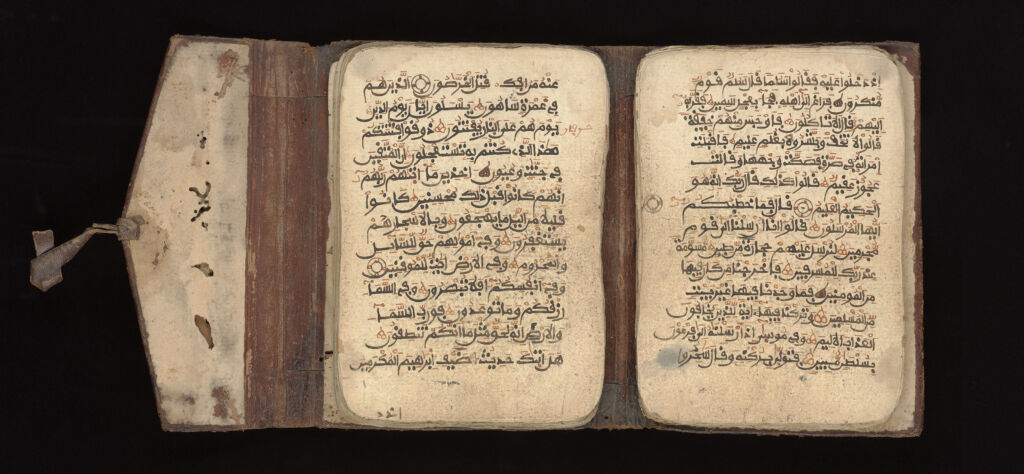 عنه من افك قتل الخرصون الذين هم
في غمرة ساهون يسلون ايان يوم الدين
يوم هم على النار يفتنون ذوقوا فتنتكم
هذا الذي كنتم به تستعجلون ان المتقين
في جنت وعيون اخذين ما اتيهم ربهم
انهم كانوا قبل ذلك محسنين كانوا
قليلا من اليل ما يهجعون وبالاسحار هم
يستغفرون وفي امولهم حق للسايل
والمحروم وفي الارض ايت للموقنين
وفي انفسكم افلا تبصرون وفي السما
رزقكم وما توعدون فورب السما
والارض انه لحق مثل ما انكم تنطقون
هل اتيك حديث ضيف ابرهيم المكرمين
اذ دخلوا عليه فقالوا سلما قال سلم قوم
منكرون فراغ الى اهله فجا بعجل سمين فقربه
اليهم قال الا تاكلون فاوجس منهم خيفة
قالوا لا تخف وبشروه بغلم عليم فاقبلت
امراته في صرة فصكت وجهها وقالت
عجوز عقيم قالوا كذلك قال ربك انه هو
الحكيم العليم قال فما خطبكم
ايها المرسلون قالوا انا ارسلنا الى قوم
مجرمين لنرسل عليهم حجارة من طين مسومة
عند ربك للمسرفين فاخرجنا من كان فيها
من المومنين فما وجدنا فيها غير بيت
من المسلمين وتركنا فيها اية للذين يخافون
العذاب الاليم وفي موسى اذ ارسلنه الى فرعون
بسلطن مبين فتولى بركنه وقال سحر او